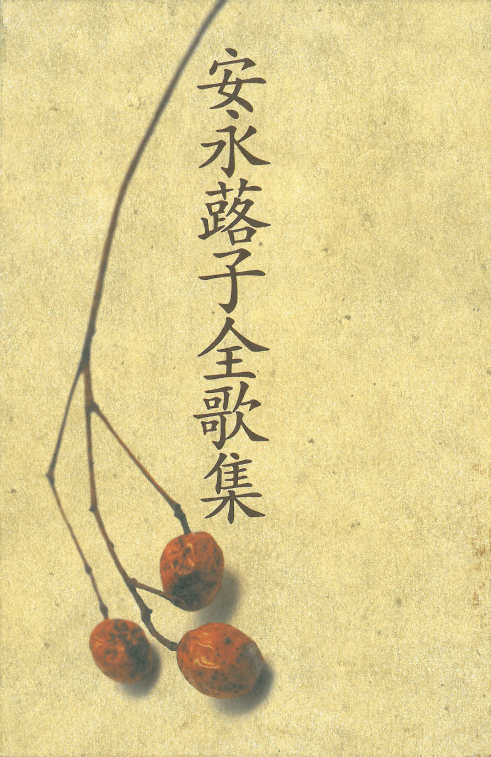 安永蕗子全歌集